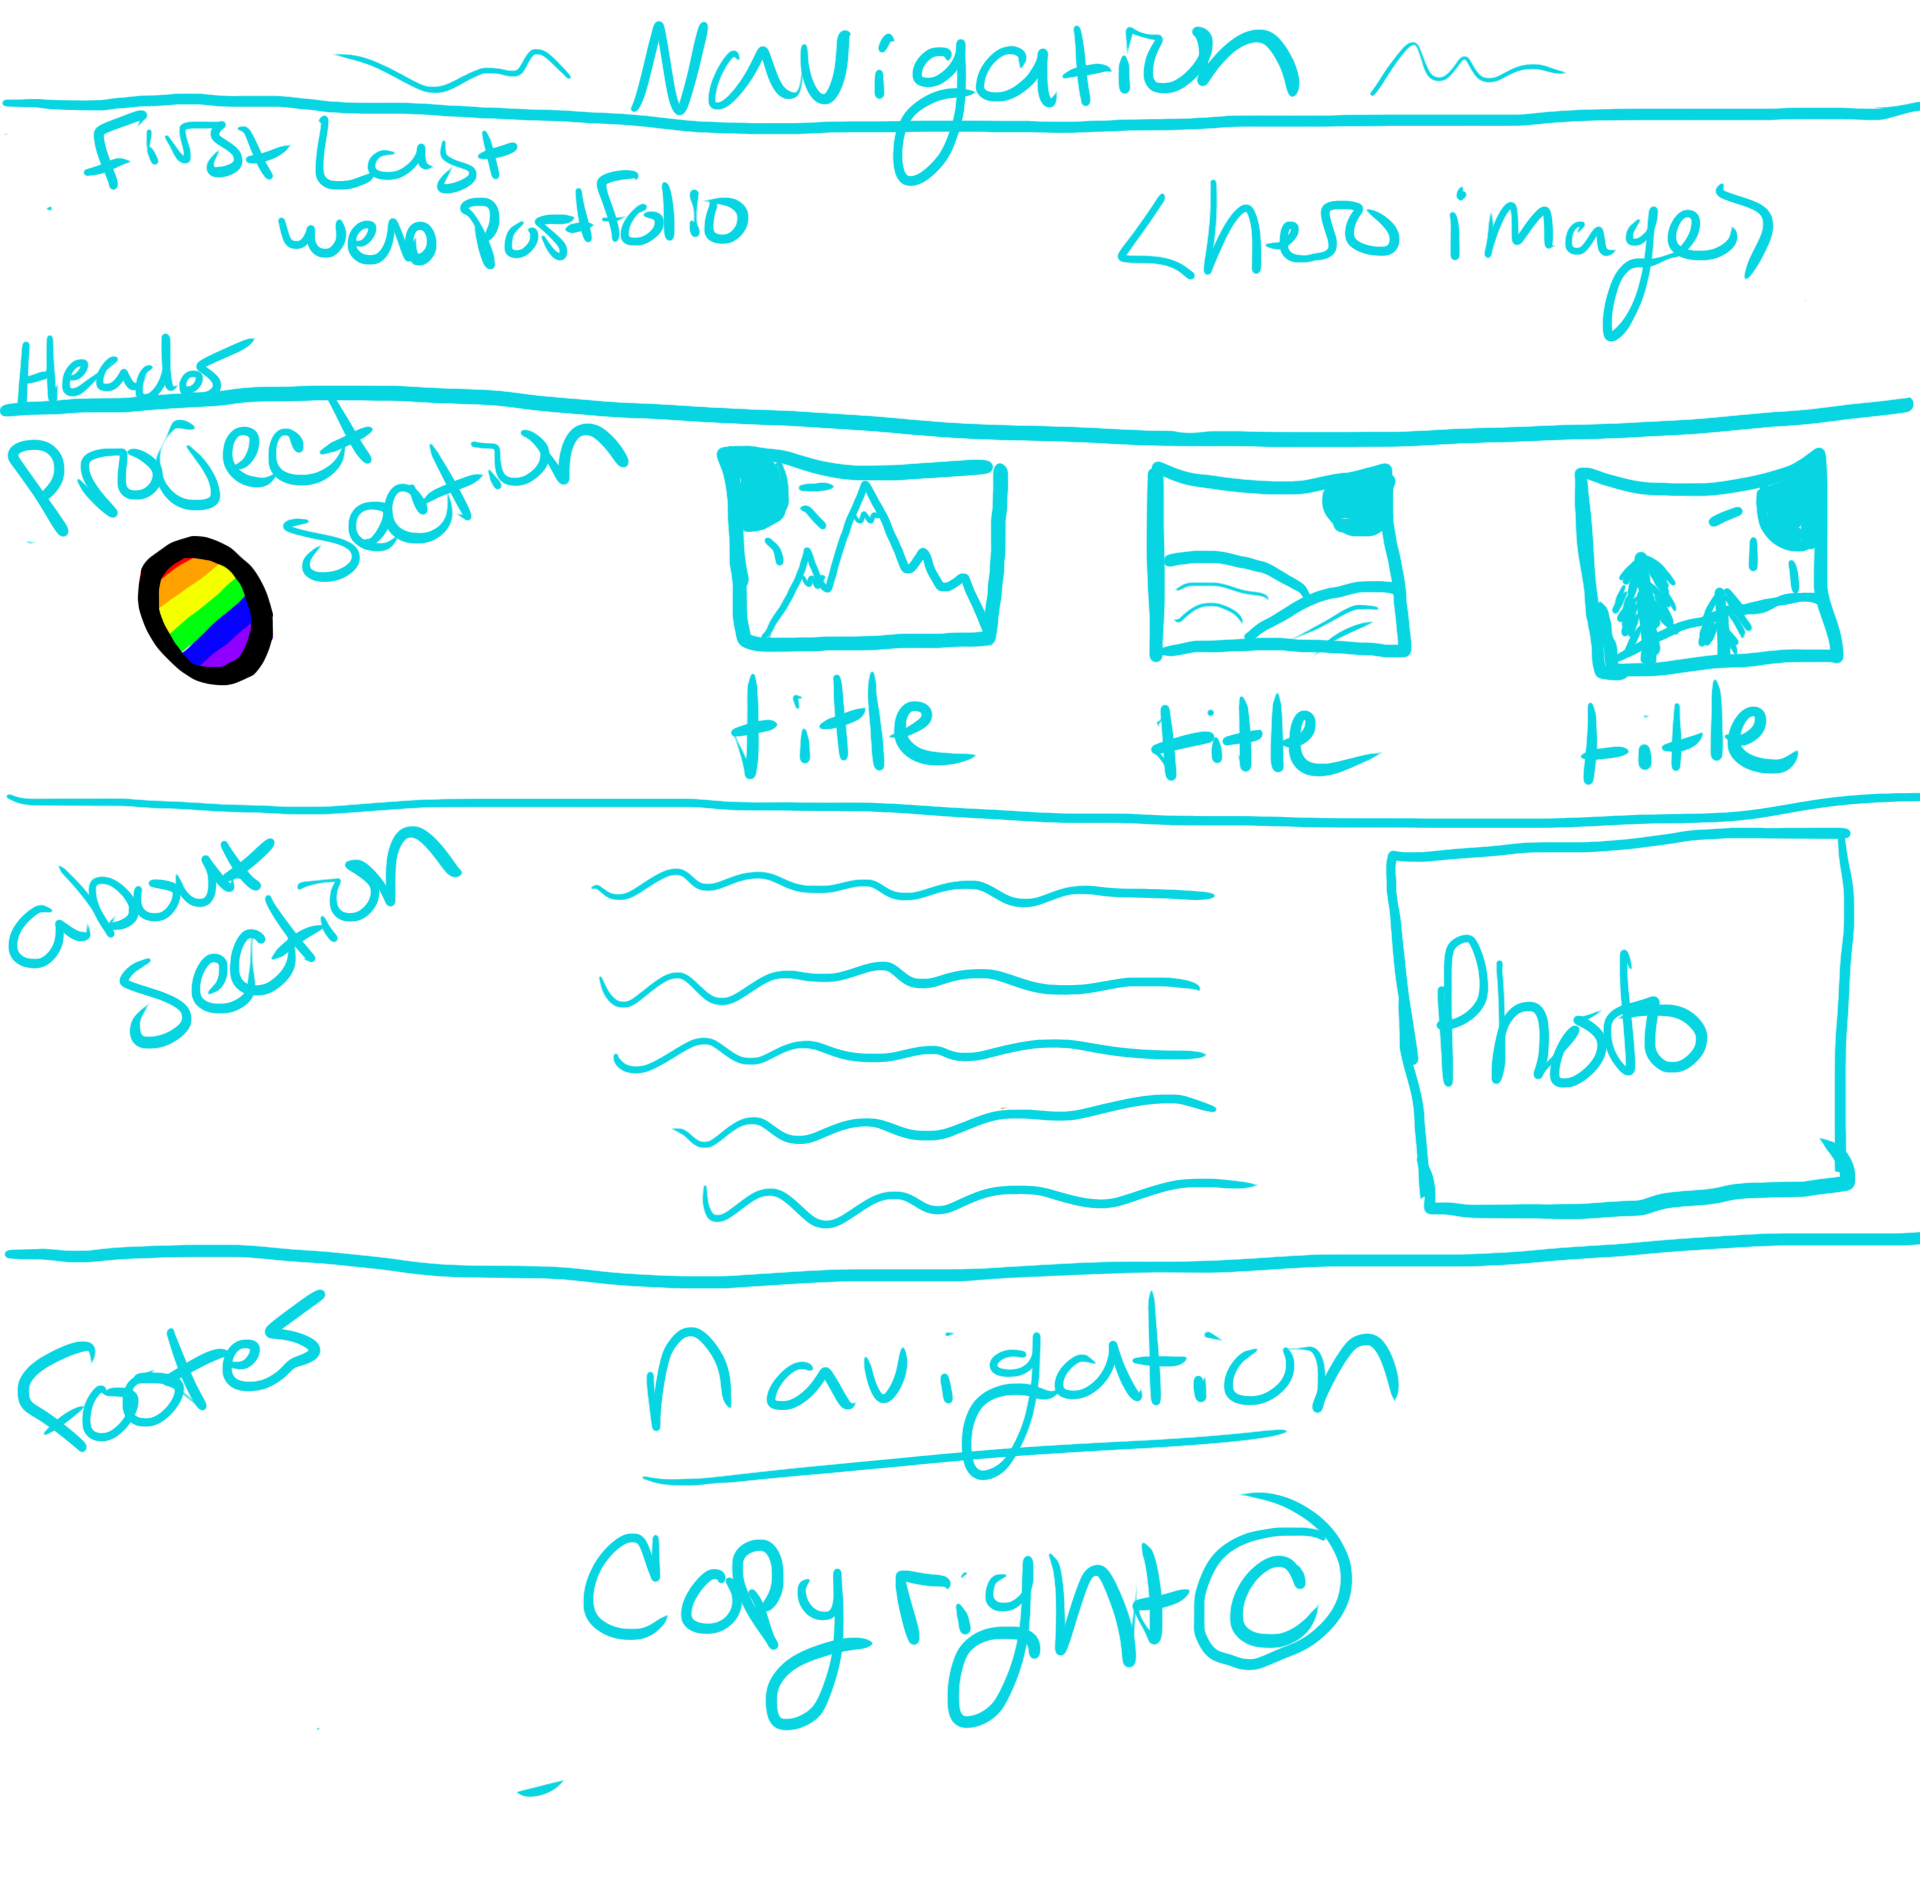 Navigation
First Last
web portfolio
<hero image>
Header
Project
section
title
title
title
about
section
Photo
Footer
navigation
Copyright ©